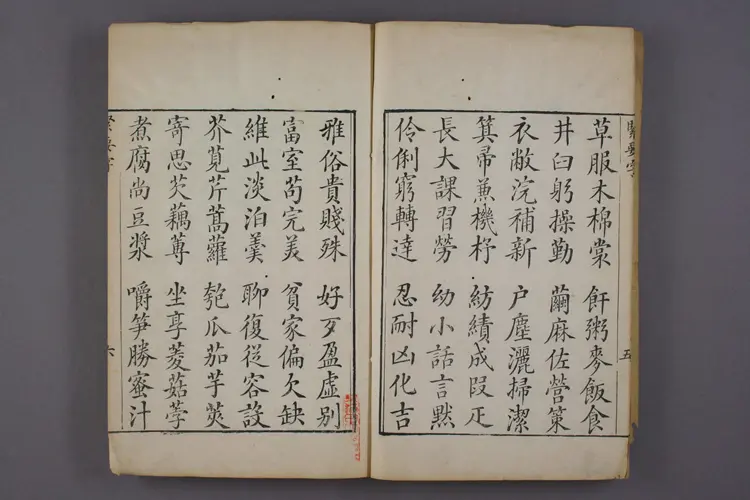 草服木棉棠 飦粥麥飯食
井臼躬操勤 繭麻佐營策
衣敝浣補新 户塵灑掃潔
箕帚兼機杼 紡績成叚疋
長大課習勞 幼小話言黙
伶俐窮轉達 忍耐凶化吉
五
雅俗貴賤殊 好歹盈虛别
富室苟完美 貧家偏欠缺
維此淡泊羹 聊復從容設
芥莧芹蒿蘿 匏瓜茄芋莢
寄思芡藕蓴 坐享菱菇荸
煮腐尚豆漿 嚼笋勝蜜汁
六